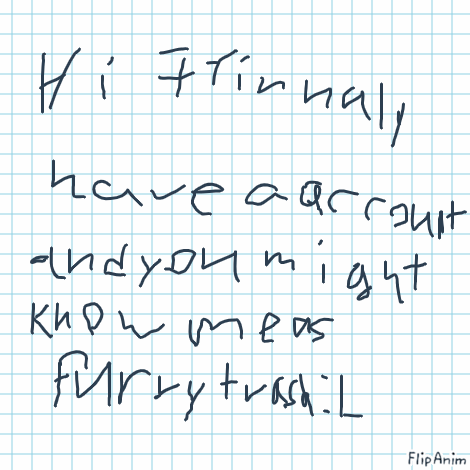 Hi Finnaly
have a account
and you might
know me as
furrytrash:L
FlipAnim